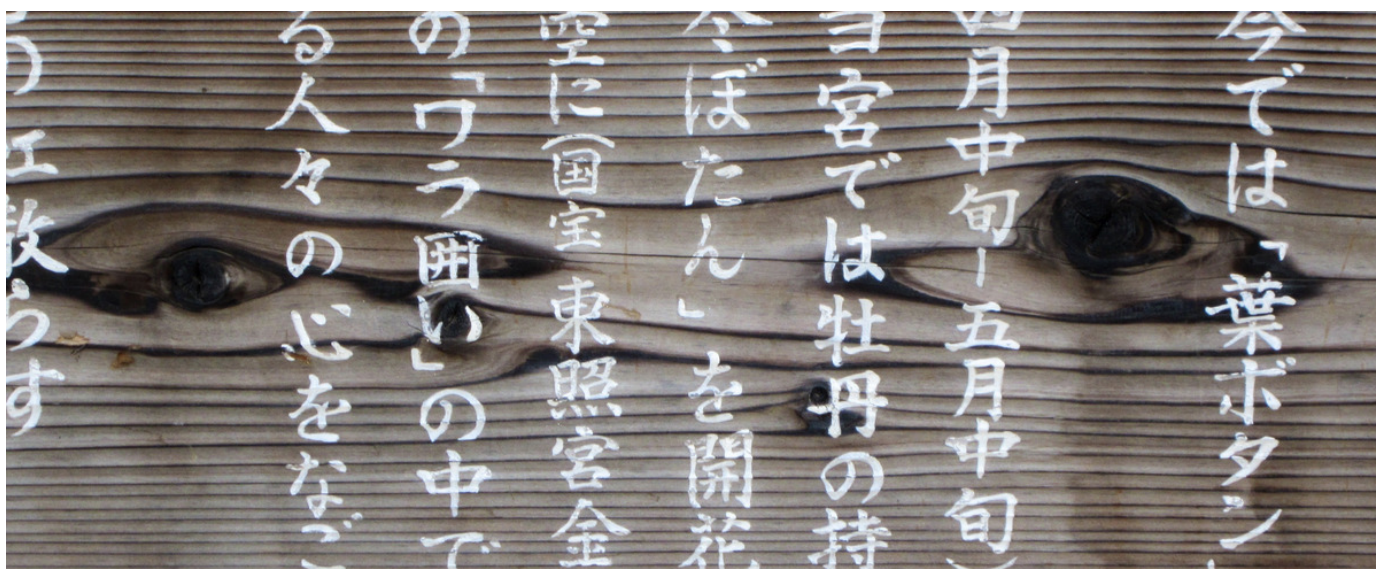 今では「葉ボタン
四月中旬ー五月中旬）
当宮では牡丹の持
冬ぼたん」を開花
空に（国宝 東照宮金
の「ワラ囲い」の中で
る人々の心をなご
散らす